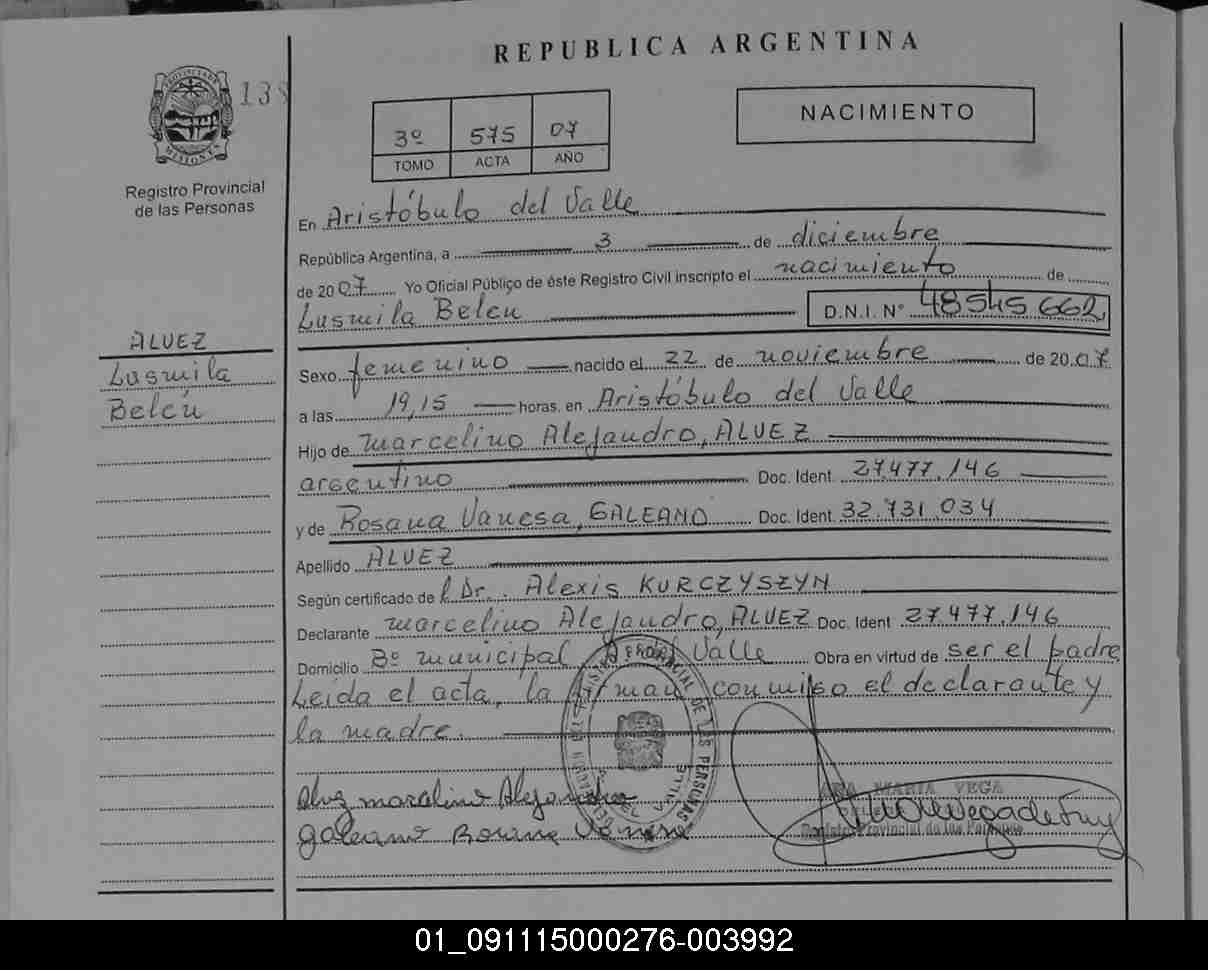 REPUBLICA ARGENTINA
PROVINCIA DE
MISIONES
138
Registro Provincial
de las Personas
3º 575 07
TOMO ACTA AÑO
NACIMIENTO
En Aristóbulo del Valle
República Argentina, a 3 de diciembre
de 2007 Yo Oficial Público de éste Registro Civil inscripto el nacimiento de
Lusmila Belen D.N.I. Nº 48545662
ALVEZ
Lusmila
Belén
Sexo femenino nacido el 22 de noviembre de 2007
a las 19,15 horas, en Aristóbulo del Valle
Hijo de Marcelino Alejandro, ALVEZ
argentino Doc. Ident. 27.477.146
y de Rosana Vanesa, GALEANO Doc. Ident. 32.731.034
Apellido ALVEZ
Según certificado de l Dr. Alexis KURCZYSZYN
Declarante Marcelino Alejandro, ALVEZ Doc. Ident 27.477.146
Domicilio Bº municipal A. del Valle Obra en virtud de ser el padre
Leída el acta, la firman conmigo el declarante y
la madre.
Alvez Marcelino Alejandro
Galeano Rosana Vanesa
ANA MARIA VEGA
Registro Provincial de las Personas
01_091115000276-003992